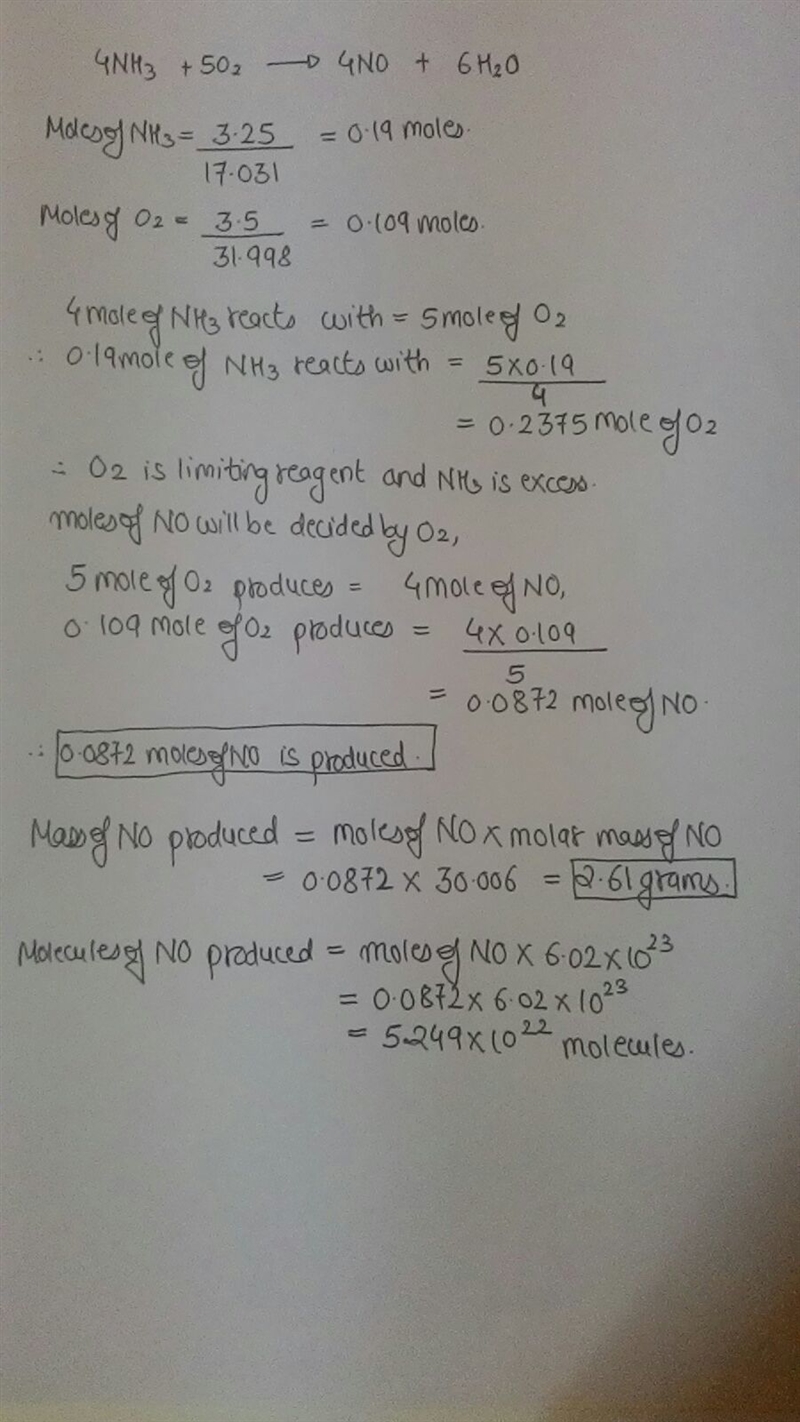 4NH3 + 5O2 → 4NO + 6H2O
Moles of NH3 = 3.25 / 17.031 = 0.19 moles.
Moles of O2 = 3.5 / 31.998 = 0.109 moles.
4 mole of NH3 reacts with = 5 mole of O2
∴ 0.19 mole of NH3 reacts with = 5×0.19 / 4
= 0.2375 mole of O2
∴ O2 is limiting reagent and NH3 is excess.
moles of NO will be decided by O2,
5 mole of O2 produces = 4 mole of NO,
0.109 mole of O2 produces = 4×0.109 / 5
= 0.0872 mole of NO.
∴ 0.0872 moles of NO is produced.
Mass of NO produced = moles of NO × molar mass of NO
= 0.0872 × 30.006 = 2.61 grams.
Molecules of NO produced = moles of NO × 6.02×10^23
= 0.0872 × 6.02×10^23
= 5.249×10^22 molecules.